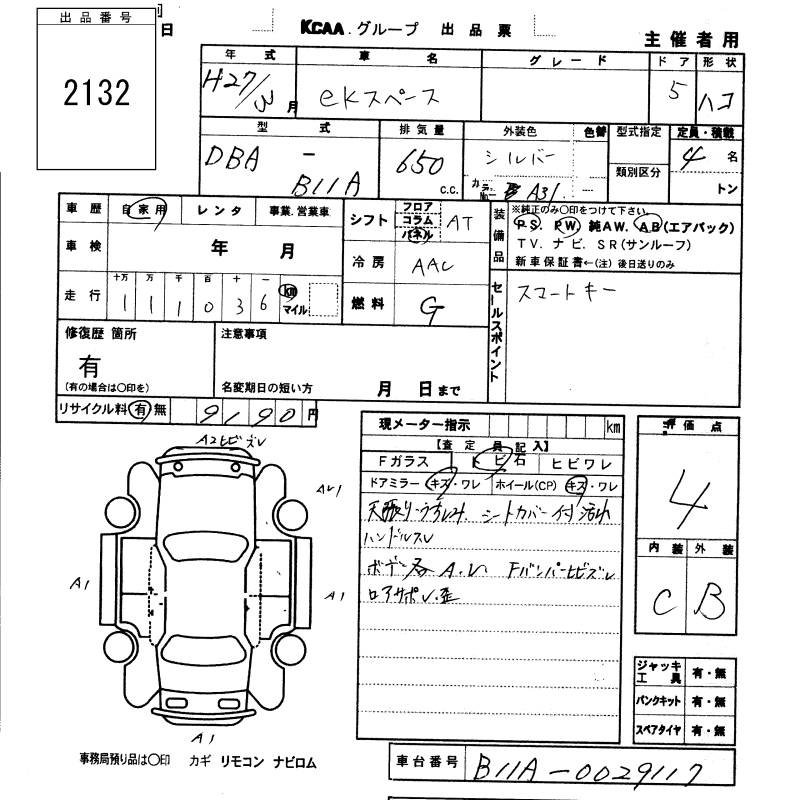 出品番号
2132
日
KCAA.グループ 出品票
主催者用
年式 車名 グレード ドア 形状
H27/3月 eKスペース 5 ハコ
型式 排気量 外装色 色替 型式指定 定員・積載
DBA - B11A 650 c.c. シルバー 類別区分 4名
カラーNo. A31 トン
車歴 自家用 レンタ 事業.営業車
シフト フロア コラム パネル AT
装備品 ※純正のみ〇印をつけて下さい。
PS. PW. 純AW. AB(エアバック)
TV. ナビ. SR(サンルーフ)
新車保証書←(注)後日送りのみ
車検 年 月
冷房 AAC
走行 十万 万 千 百 十 一
111036 km マイル
燃料 G
セールスポイント スマートキー
修復歴 箇所
有
(有の場合は〇印を)
注意事項
名変期日の短い方 月 日まで
リサイクル料 有 無 9190円
現メーター指示 km
【査定員記入】
Fガラス トビ石 ヒビワレ
ドアミラー キズ・ワレ ホイール(CP) キズ・ワレ
シートカバー付
ハンドルスレ
A.U Fバンパーヒビズレ
ロアサポU.歪
評価点
4
内装 外装
C B
A2ヒビズレ
AU1
A1
A1
A1
ジャッキ工具 有・無
パンクキット 有・無
スペアタイヤ 有・無
事務局預り品は〇印 カギ リモコン ナビロム
車台番号 B11A-0029117